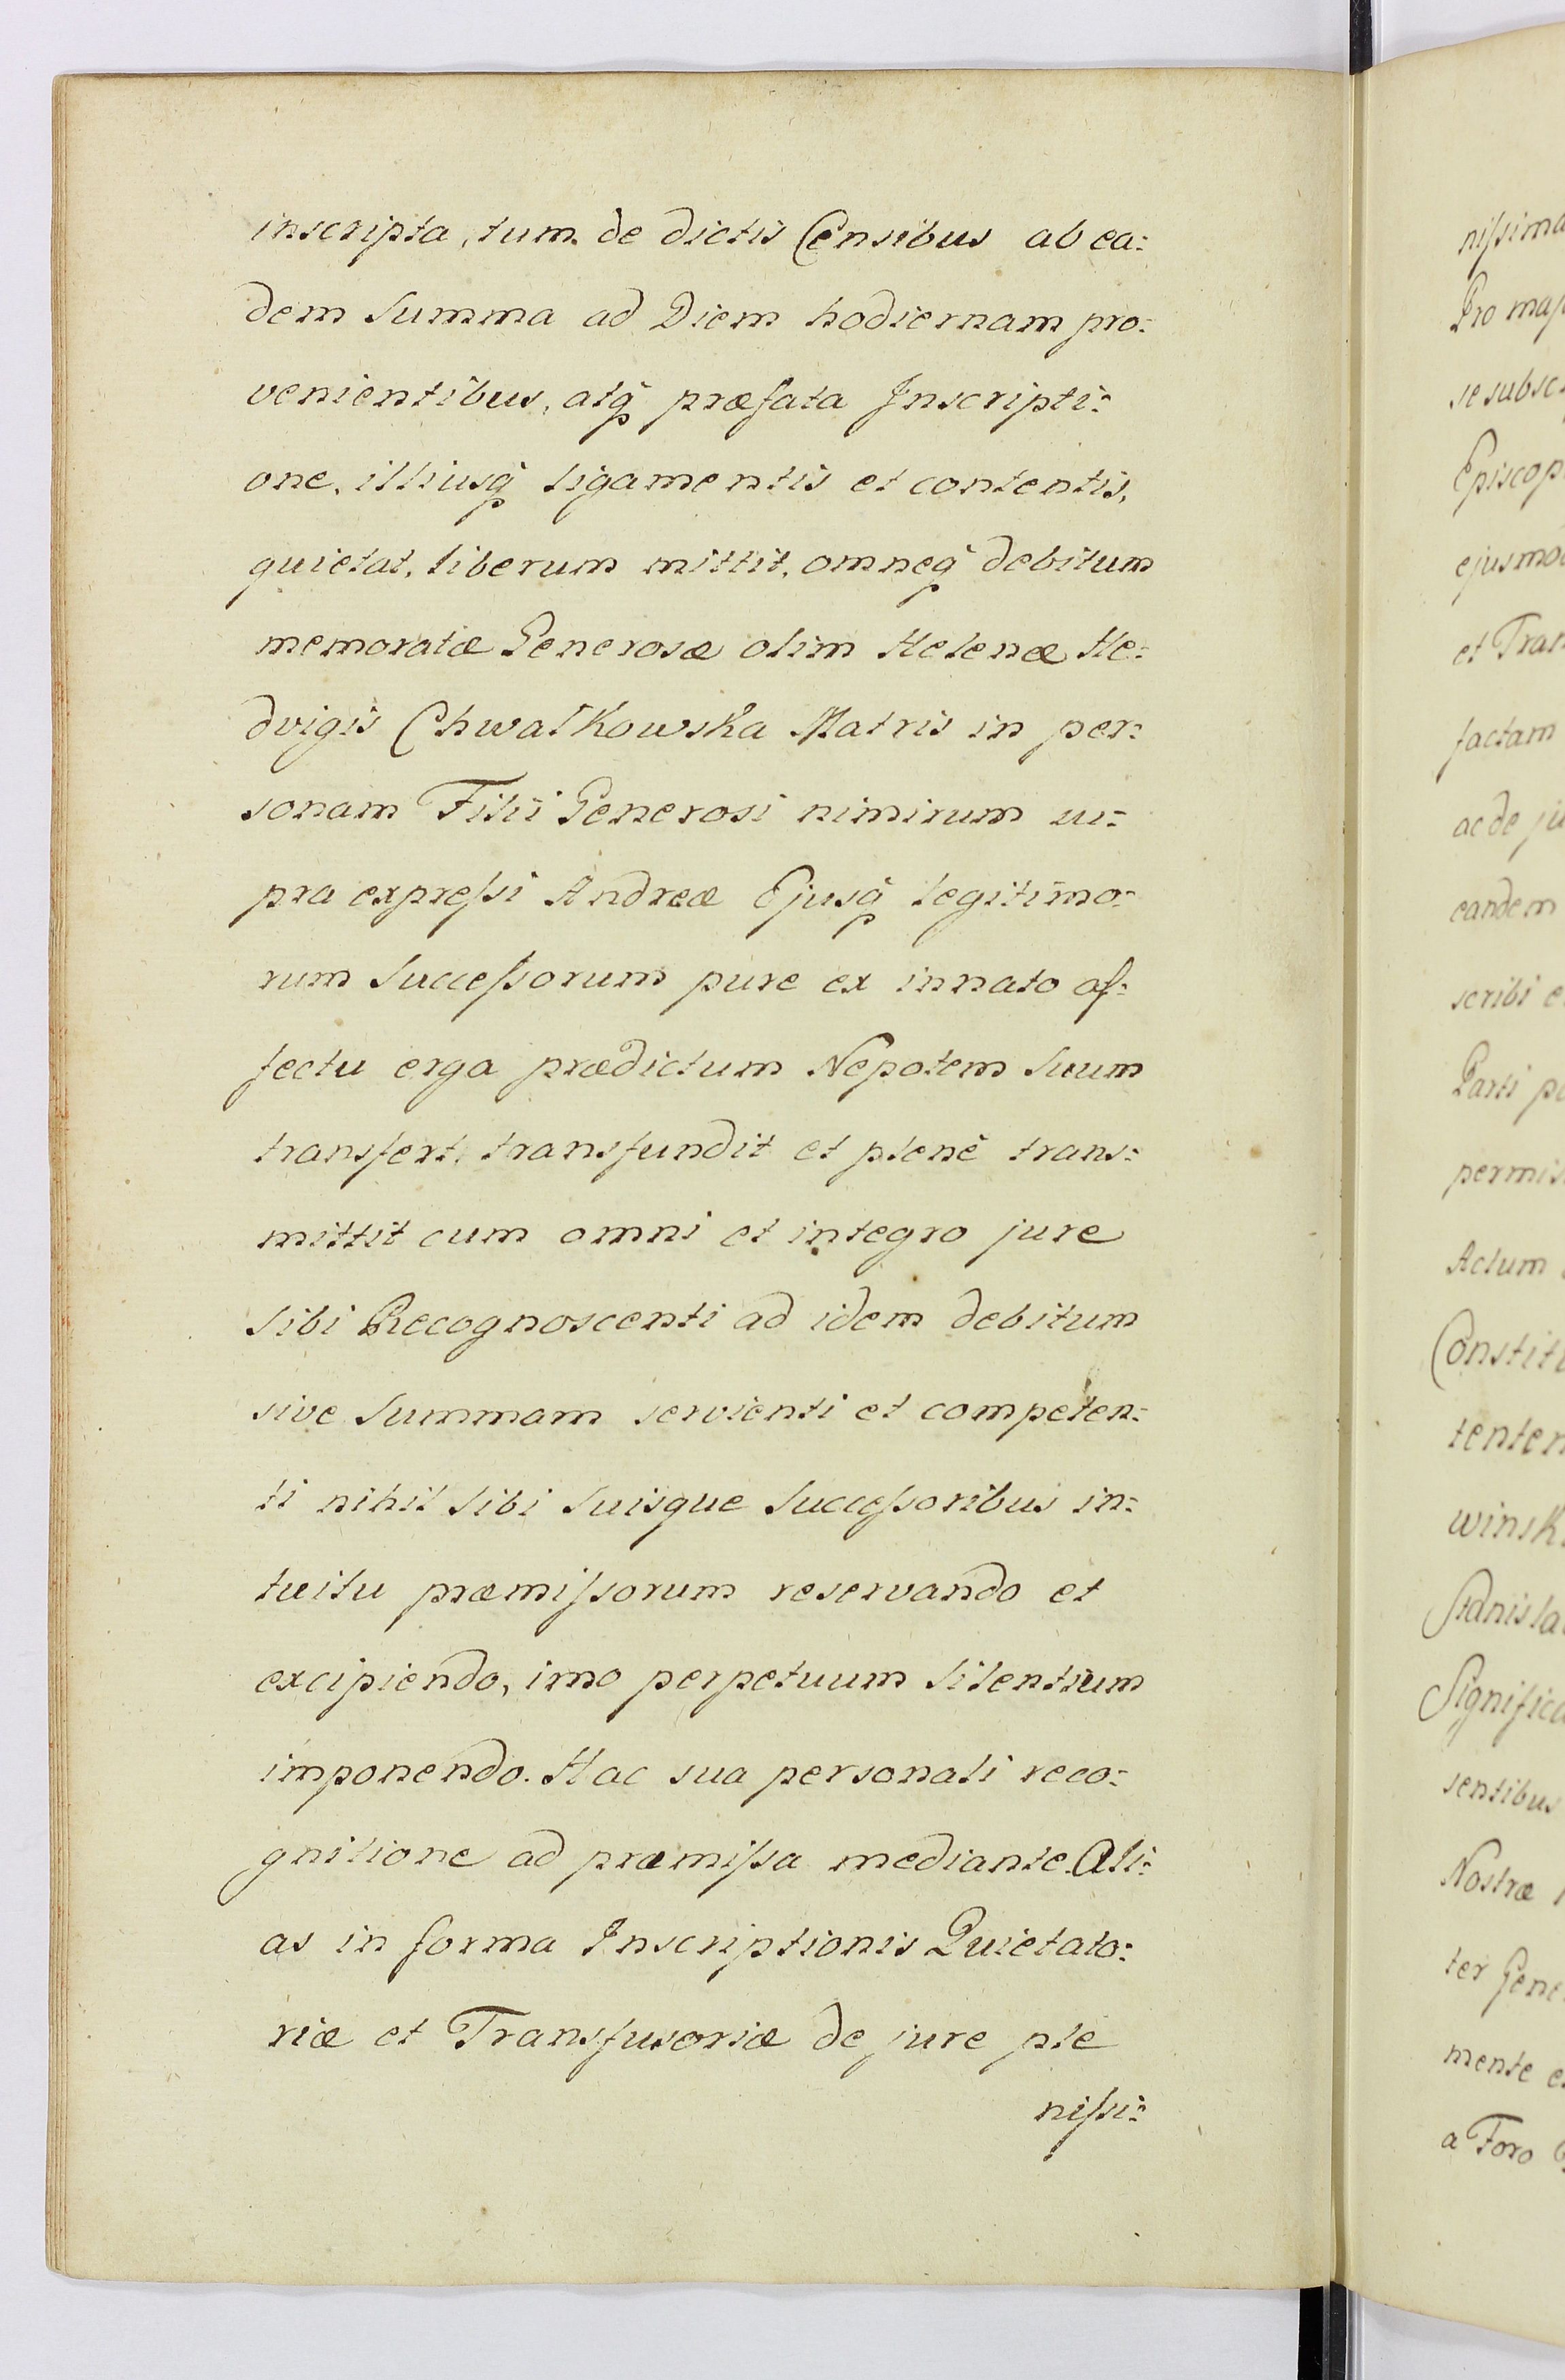 inscripta, tum de dictis Censibus ab ea:
dem Summa ad Diem hodiernam pro:
venientibus, atq præfata Inscripti:
one, illiusq ligamentis et contentis,
quietat, liberum mittit, omneq debitum
memoratæ Generosæ olim Helenæ He:
dvigis Chwalkowska Matris in per:
sonam Filii Generosi nimirum su:
pra expreſsi Andreæ Ejusq legitimo:
rum Succeſsorum pure ex innato af:
fectu erga prædictum Nepotem Suum
transfert, transfundit et plenè trans:
mittit cum omni et integro jure
Sibi Recognoscenti ad idem debitum
sive Summam servienti et competen:
ti nihil Sibi Suisque Succeſsoribus in:
tuitu præmiſsorum reservando et
excipiendo, imo perpetuum Silentium
imponendo. Hac sua personali reco:
gnitione ad præmiſsa mediante. Ali:
as in forma Inscriptionis Quietato:
riæ et Transfusoriæ de jure ple
niſsi:
niſsima
Pro maj
se subsc
Episcop
ejusmo
et Tran
factam
ac de ju
eandem
scribi e
Parti p
permis
Actum
Constit
tenten
winsk
Stanisla
Significa
sentibus
Nostræ
ter Gene
mente e
a Foro